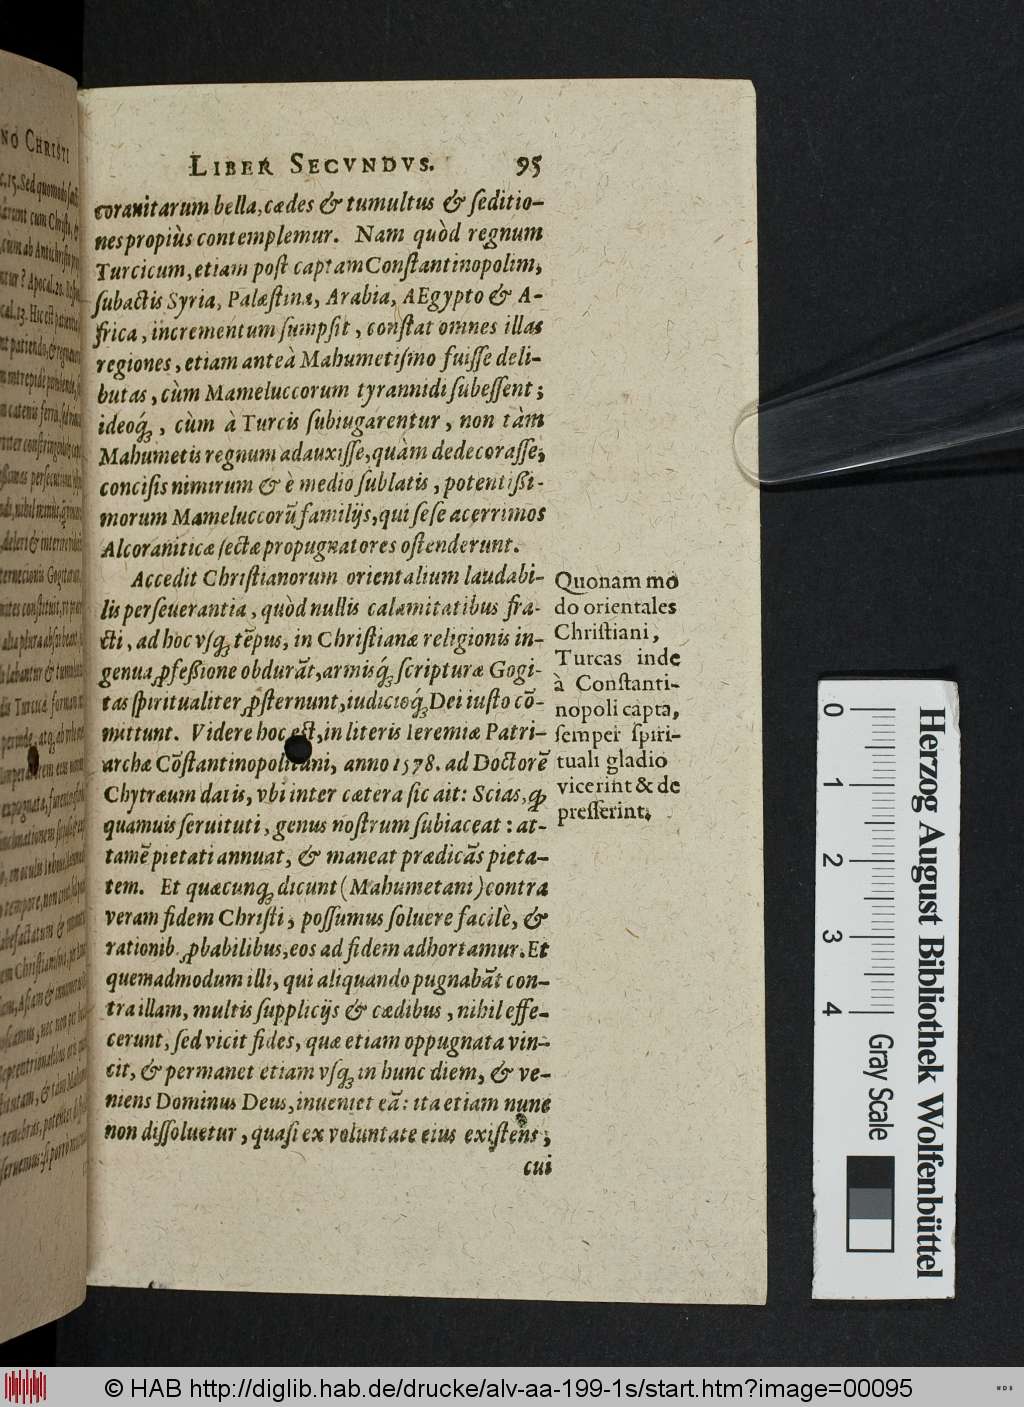 LIBER SECVNDVS. 95
coranitarum bella, cædes & tumultus & ſeditio-
nes propiùs contemplemur. Nam quòd regnum
Turcicum, etiam poſt captam Conſtantinopolim,
ſubactis Syria, Palæſtina, Arabia, AEgypto & A-
frica, incrementum ſumpſit, conſtat omnes illas
regiones, etiam anteà Mahumetiſmo fuiſſe deli-
butas, cùm Mameluccorum tyrannidi ſubeſſent;
ideoq́ꝫ, cùm à Turcis ſubiugarentur, non tàm
Mahumetis regnum adauxiſſe, quàm dedecoraſſe;
conciſis nimirum & è medio ſublatis, potentißi-
morum Mameluccorũ familijs, qui ſeſe acerrimos
Alcoraniticæ ſectæ propugnatores oſtenderunt.
Accedit Chriſtianorum orientalium laudabi-
lis perſeuerantia, quòd nullis calamitatibus fra-
cti, ad hoc vſqꝫ tẽpus, in Chriſtianæ religionis in-
genua ꝓfeßione obdurãt, armisq́ꝫ ſcripturæ Gogi-
tas ſpiritualiter ꝓſternunt, iudicioq́ꝫ Dei iuſto cõ-
mittunt. Videre hoc eſt, in literis Ieremiæ Patri-
archæ Cõſtantinopolitani, anno 1578. ad Doctorẽ
Chytræum datis, vbi inter cætera ſic ait: Scias, ꝙ
quamuis ſeruituti, genus noſtrum ſubiaceat: at-
tamẽ pietati annuat, & maneat prædicãs pieta-
tem. Et quæcunqꝫ dicunt (Mahumetani) contra
veram fidem Chriſti, poſſumus ſoluere facilè, &
rationib. ꝓbabilibus, eos ad fidem adhortamur. Et
quemadmodum illi, qui aliquando pugnabãt con-
tra illam, multis ſupplicijs & cædibus, nihil effe-
cerunt, ſed vicit fides, quæ etiam oppugnata vin-
cit, & permanet etiam vſqꝫ in hunc diem, & ve-
niens Dominus Deus, inueniet eã: ita etiam nunc
non diſſoluetur, quaſi ex voluntate eius exiſtens;
cui
Quonam mo
do orientales
Chriſtiani,
Turcas inde
à Conſtanti-
nopoli capta,
ſemper ſpiri-
tuali gladio
vicerint & de
preſſerint.
0 1 2 3 4
Gray Scale
Herzog August Bibliothek Wolfenbüttel
© HAB http://diglib.hab.de/drucke/alv-aa-199-1s/start.htm?image=00095